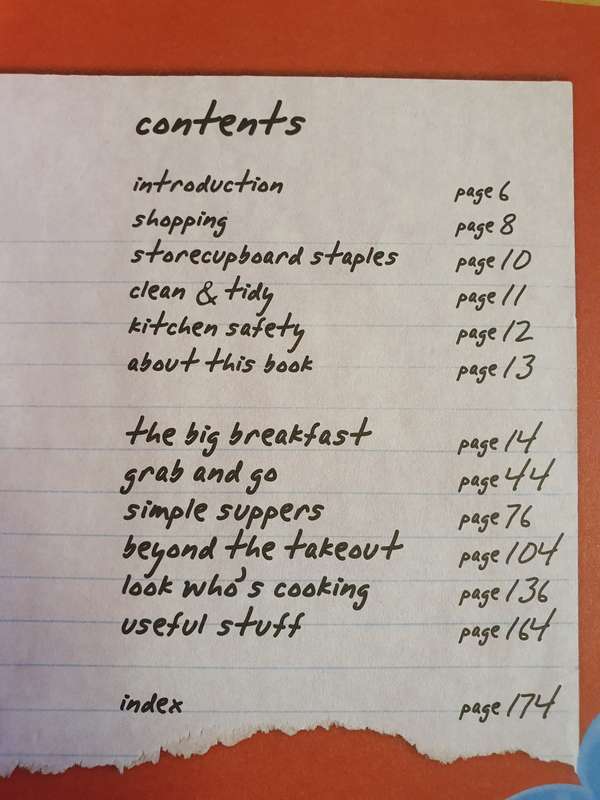 contents
introduction page 6
shopping page 8
storecupboard staples page 10
clean & tidy page 11
kitchen safety page 12
about this book page 13
the big breakfast page 14
grab and go page 44
simple suppers page 76
beyond the takeout page 104
look who's cooking page 136
useful stuff page 164
index page 174